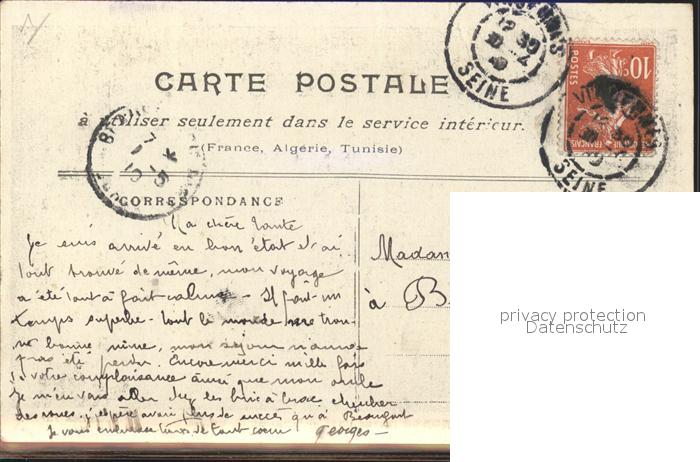 VINCENNES
12 30
SEINE
POSTES
10c
CARTE POSTALE
à utiliser seulement dans le service intérieur.
(France, Algérie, Tunisie)
CORRESPONDANCE
Ma chère tante
Je suis arrivé en bon état et ai
tout trouvé de même, mon voyage
a été tout à fait calme - Il fait un
temps superbe - tout le monde me trou-
ve bonne mine, mon séjour n'aura
pas été perdu. Encore merci mille fois
votre complaisance ainsi que mon oncle
Je m'en vais aller chez les bric à brac chercher
des roues. j'espère avoir plus de succès qu'à
Je vous embrasse tous de tout coeur Georges -
Madam
à B
privacy protection
Datenschutz